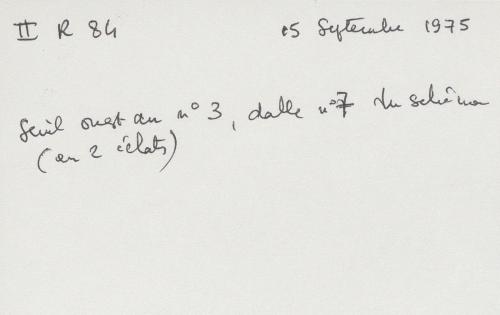 II R 84
15 Septembre 1975
Seuil ouest du n° 3, dalle n° 7 du schéma
(en 2 éclats)